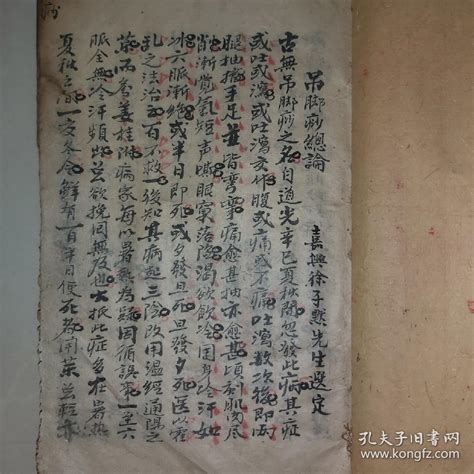 吊脚痧總論
嘉興徐子默先生選定
古無吊脚痧之名自道光辛巳夏秋間忽發此病其症
或吐或瀉或吐瀉交作腹或痛或不痛吐瀉數次後即兩
腿抽搐手足並皆彎攣痛愈甚抽亦愈甚頃刻肌肉尽
削漸覺氣短声嘶眼窠落陷渴欲飲冷周身冷汗如
冰六脈漸絶或半日即死或夕發旦死旦發夕死医以霍
乱之法治之百不救一後知其病起三陰改用温經通陽之
葯而畏姜桂附病家每以暑無為疑因循誤事一至六
脈全無冷汗頻出
雖欲挽回無及也大抵此症多在暑熱
夏秋之間一交冬令鮮有
孔夫子旧書网
www.kongfz.com